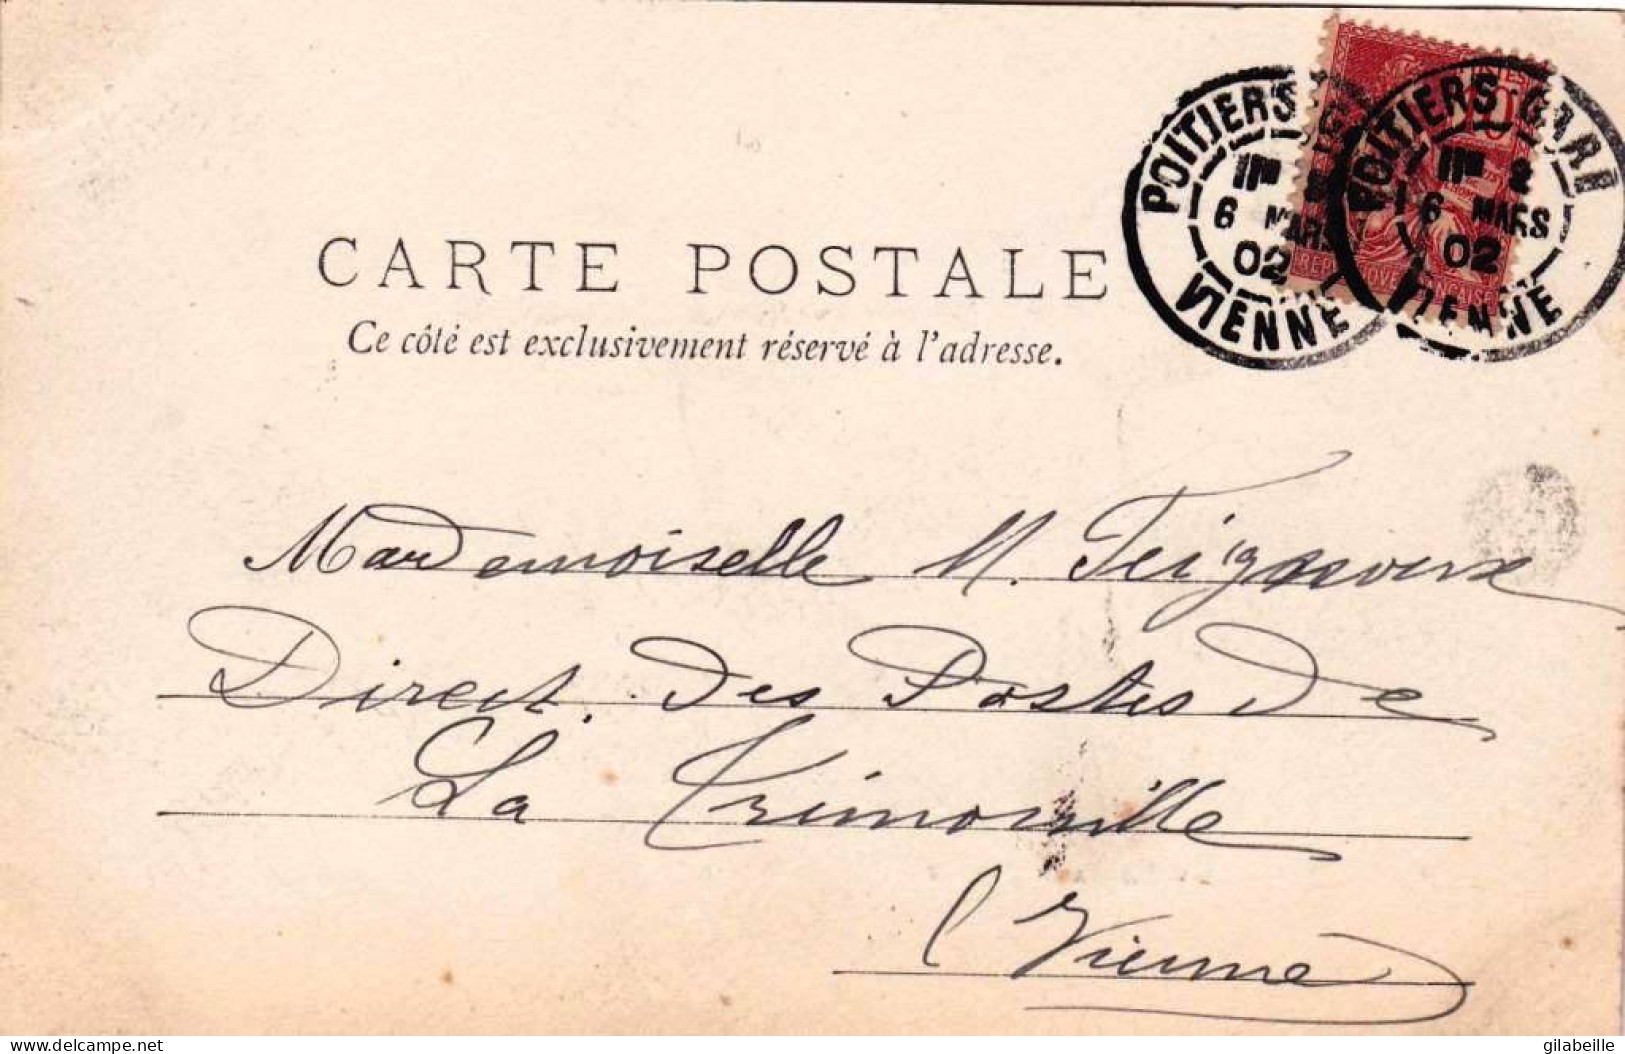 POITIERS
11E
6 MARS
02
VIENNE
POITIERS GARE
11E 2
6 MARS
02
VIENNE
CARTE POSTALE
Ce côté est exclusivement réservé à l'adresse.
Mademoiselle M.
Direct. des Postes de
La Trimouille
(Vienne)
delcampe.net
gilabeille